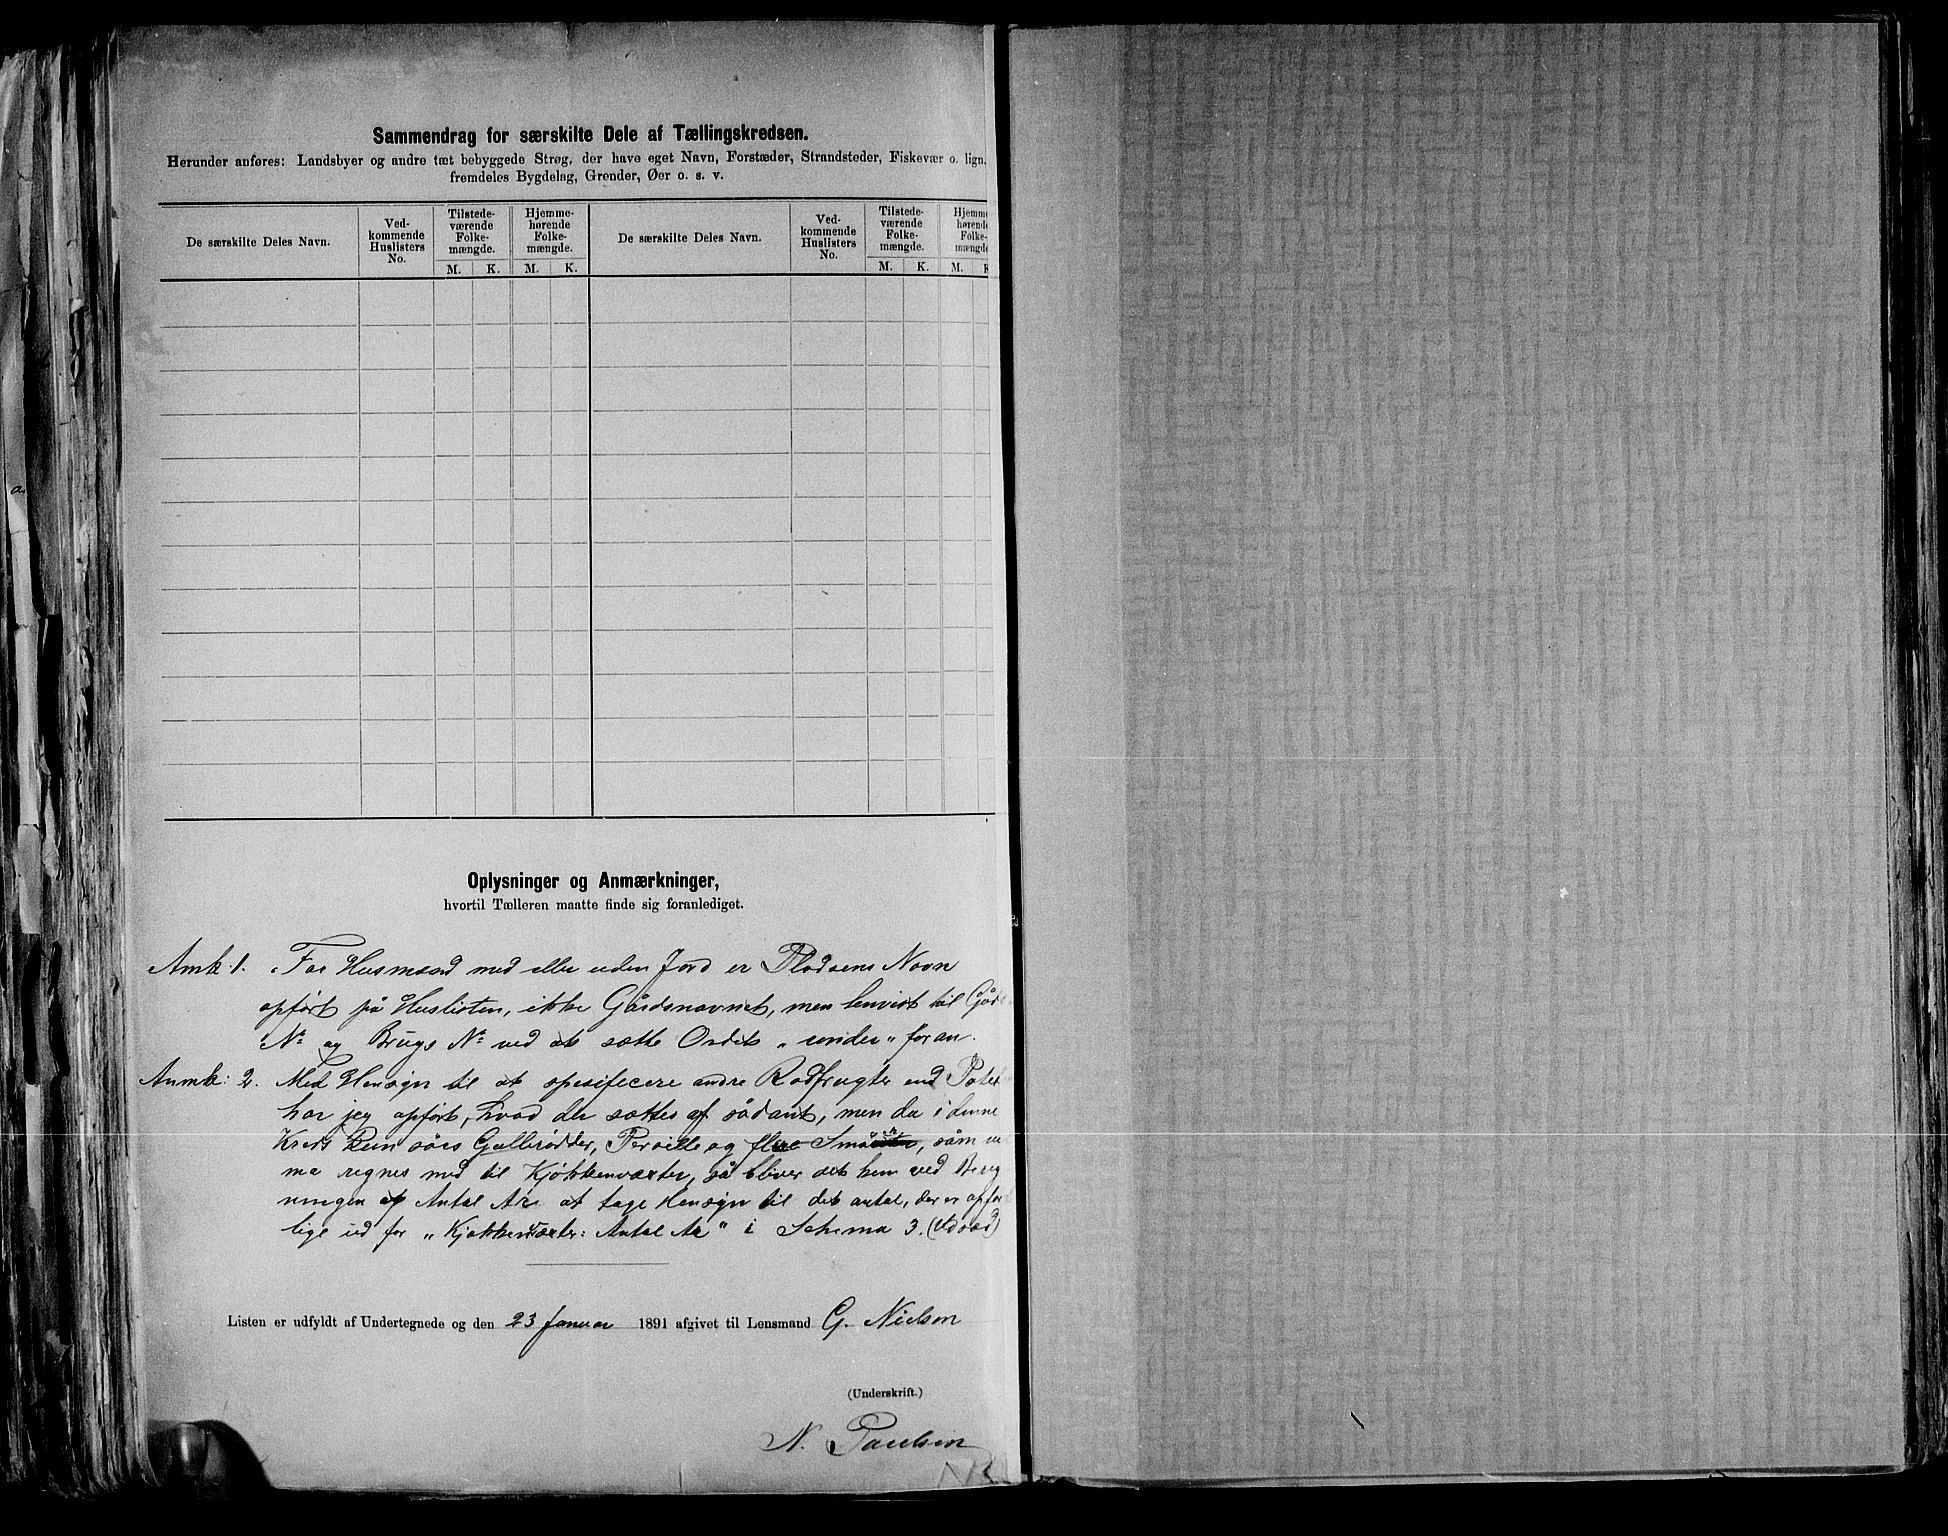 Sammendrag for særskilte Dele af Tællingskredsen.
Herunder anføres: Landsbyer og andre tæt bebyggede Strøg, der have eget Navn, Forstæder, Strandsteder, Fiskevær o. lign.
fremdeles Bygdelag, Grender, Øer o. s. v.
De særskilte Deles Navn.
Ved-
kommende
Huslisters
No.
Tilstede-
værende
Folke-
mængde.
M. K.
Hjemme-
hørende
Folke-
mængde.
M. K.
De særskilte Deles Navn.
Ved-
kommende
Huslisters
No.
Tilstede-
værende
Folke-
mængde.
M. K.
Hjemme
hørende
Folke-
mængde
M. K
Oplysninger og Anmærkninger,
hvortil Tælleren maatte finde sig foranlediget.
Amk 1. For Husmænd med eller uden Jord er Pladsens Navn
opført på Huslisten, ikke Gårdsnavnet, men henvist til Går
No og Brugs No ved at sætte Ordet „under“ foran.
Anmk: 2. Med Hensyn til at spesificere andre Rodfrugter end Potet
har jeg opført, hvad der sættes af sådant, men da i denne
Kreds kun såes Gullerødder, Persille og flere Små, såm
ma regnes med til Kjøkkenvæxter, så bliver det hem ved Bereg
ningen af Antal Ar at tage Hensyn til det antal, der er opfør
lige ud for „Kjøkkenvæxter: Antal Ar“ i Schema 3. (Udsæd)
Listen er udfyldt af Undertegnede og den 23 Januar 1891 afgivet til Lensmand G. Nielsen
(Underskrift.)
N. Paulsen